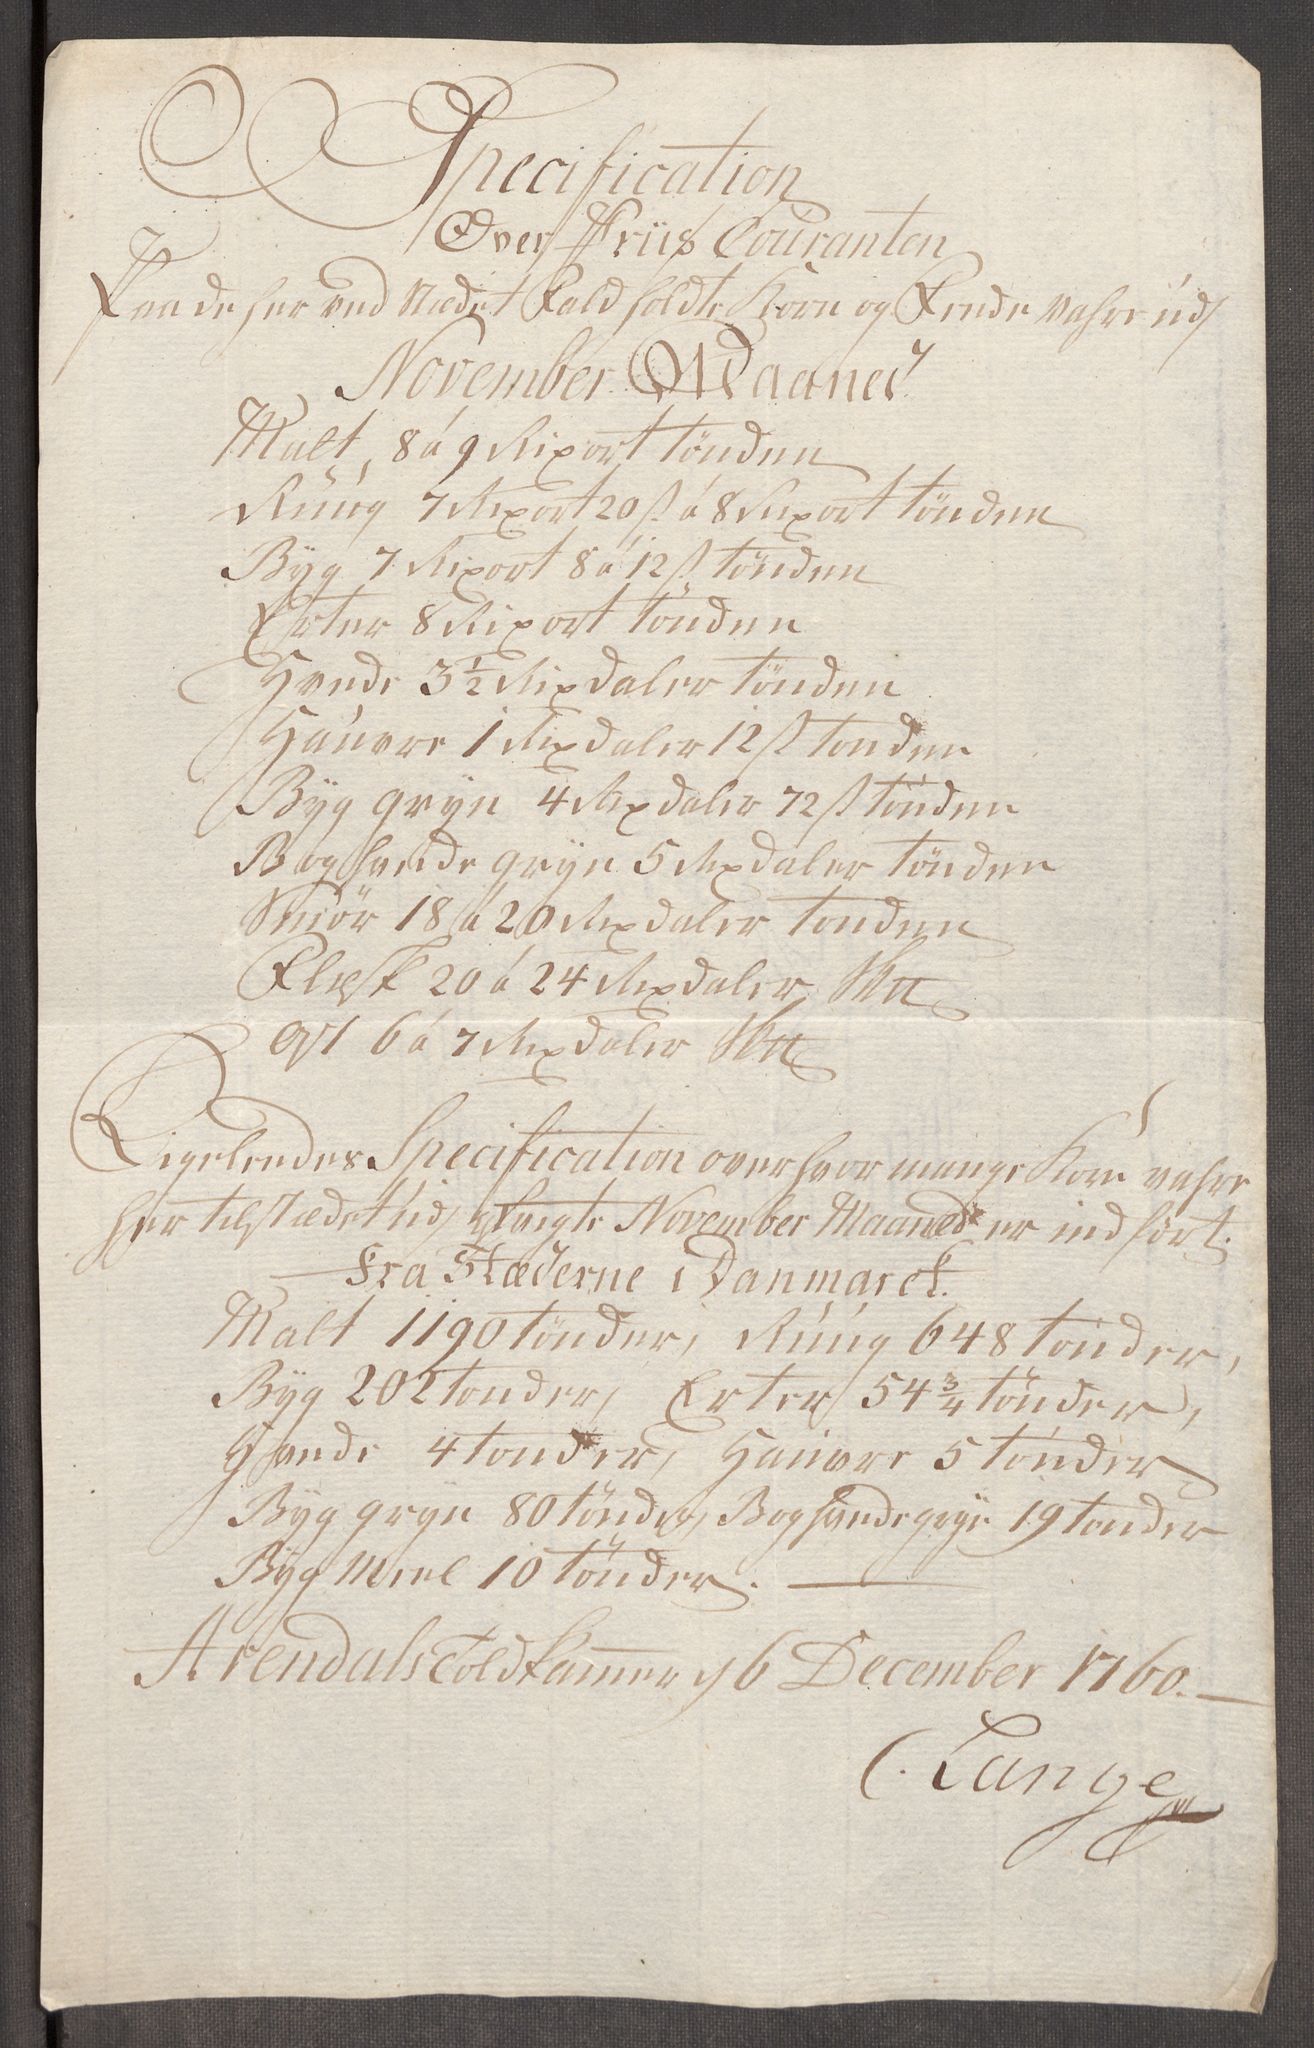 Specification
Over Priis Couranten
Paa de her ved Stædet Fald holdte Korn og Fende Vahre udj
November Maaned
Malt, 8 á 9 Rixort tönden
Rúúg 7 Rixort 20 ß á 8 Rixort tönden
Byg 7 Rixort 8 á 12 ß tönden
Erter 8 Rixort tönden
Hvede 3 1/2 Rixdaler tönden
Haúvre 1 Rixdaler 12 ß tönden
Byg gryn 4 Rixdaler 72 ß tönden
Boghvede gryn 5 Rixdaler tönden
Smör 18 á 20 Rixdaler tonden
Flesk 20 á 24 Rixdaler
Ost 6 á 7 Rixdaler
Ligeleedes Specification over hvor mange Korn vahre
her til Stædet udj November Maaned er indfört.
fra Stæderne i Danmarck.
Malt 1190 tönder, Rúúg 648 tönder,
Byg 202 tonder, Erter 54 3/4 tönder,
Hvede 4 tonder, Haúvre 5 tönder
Byg gryn 80 tönder, Boghvedegryn 19 tonder
Byg Meel 10 tönder.
Arendals Toldkammer d 6 December 1760.
C. Lange